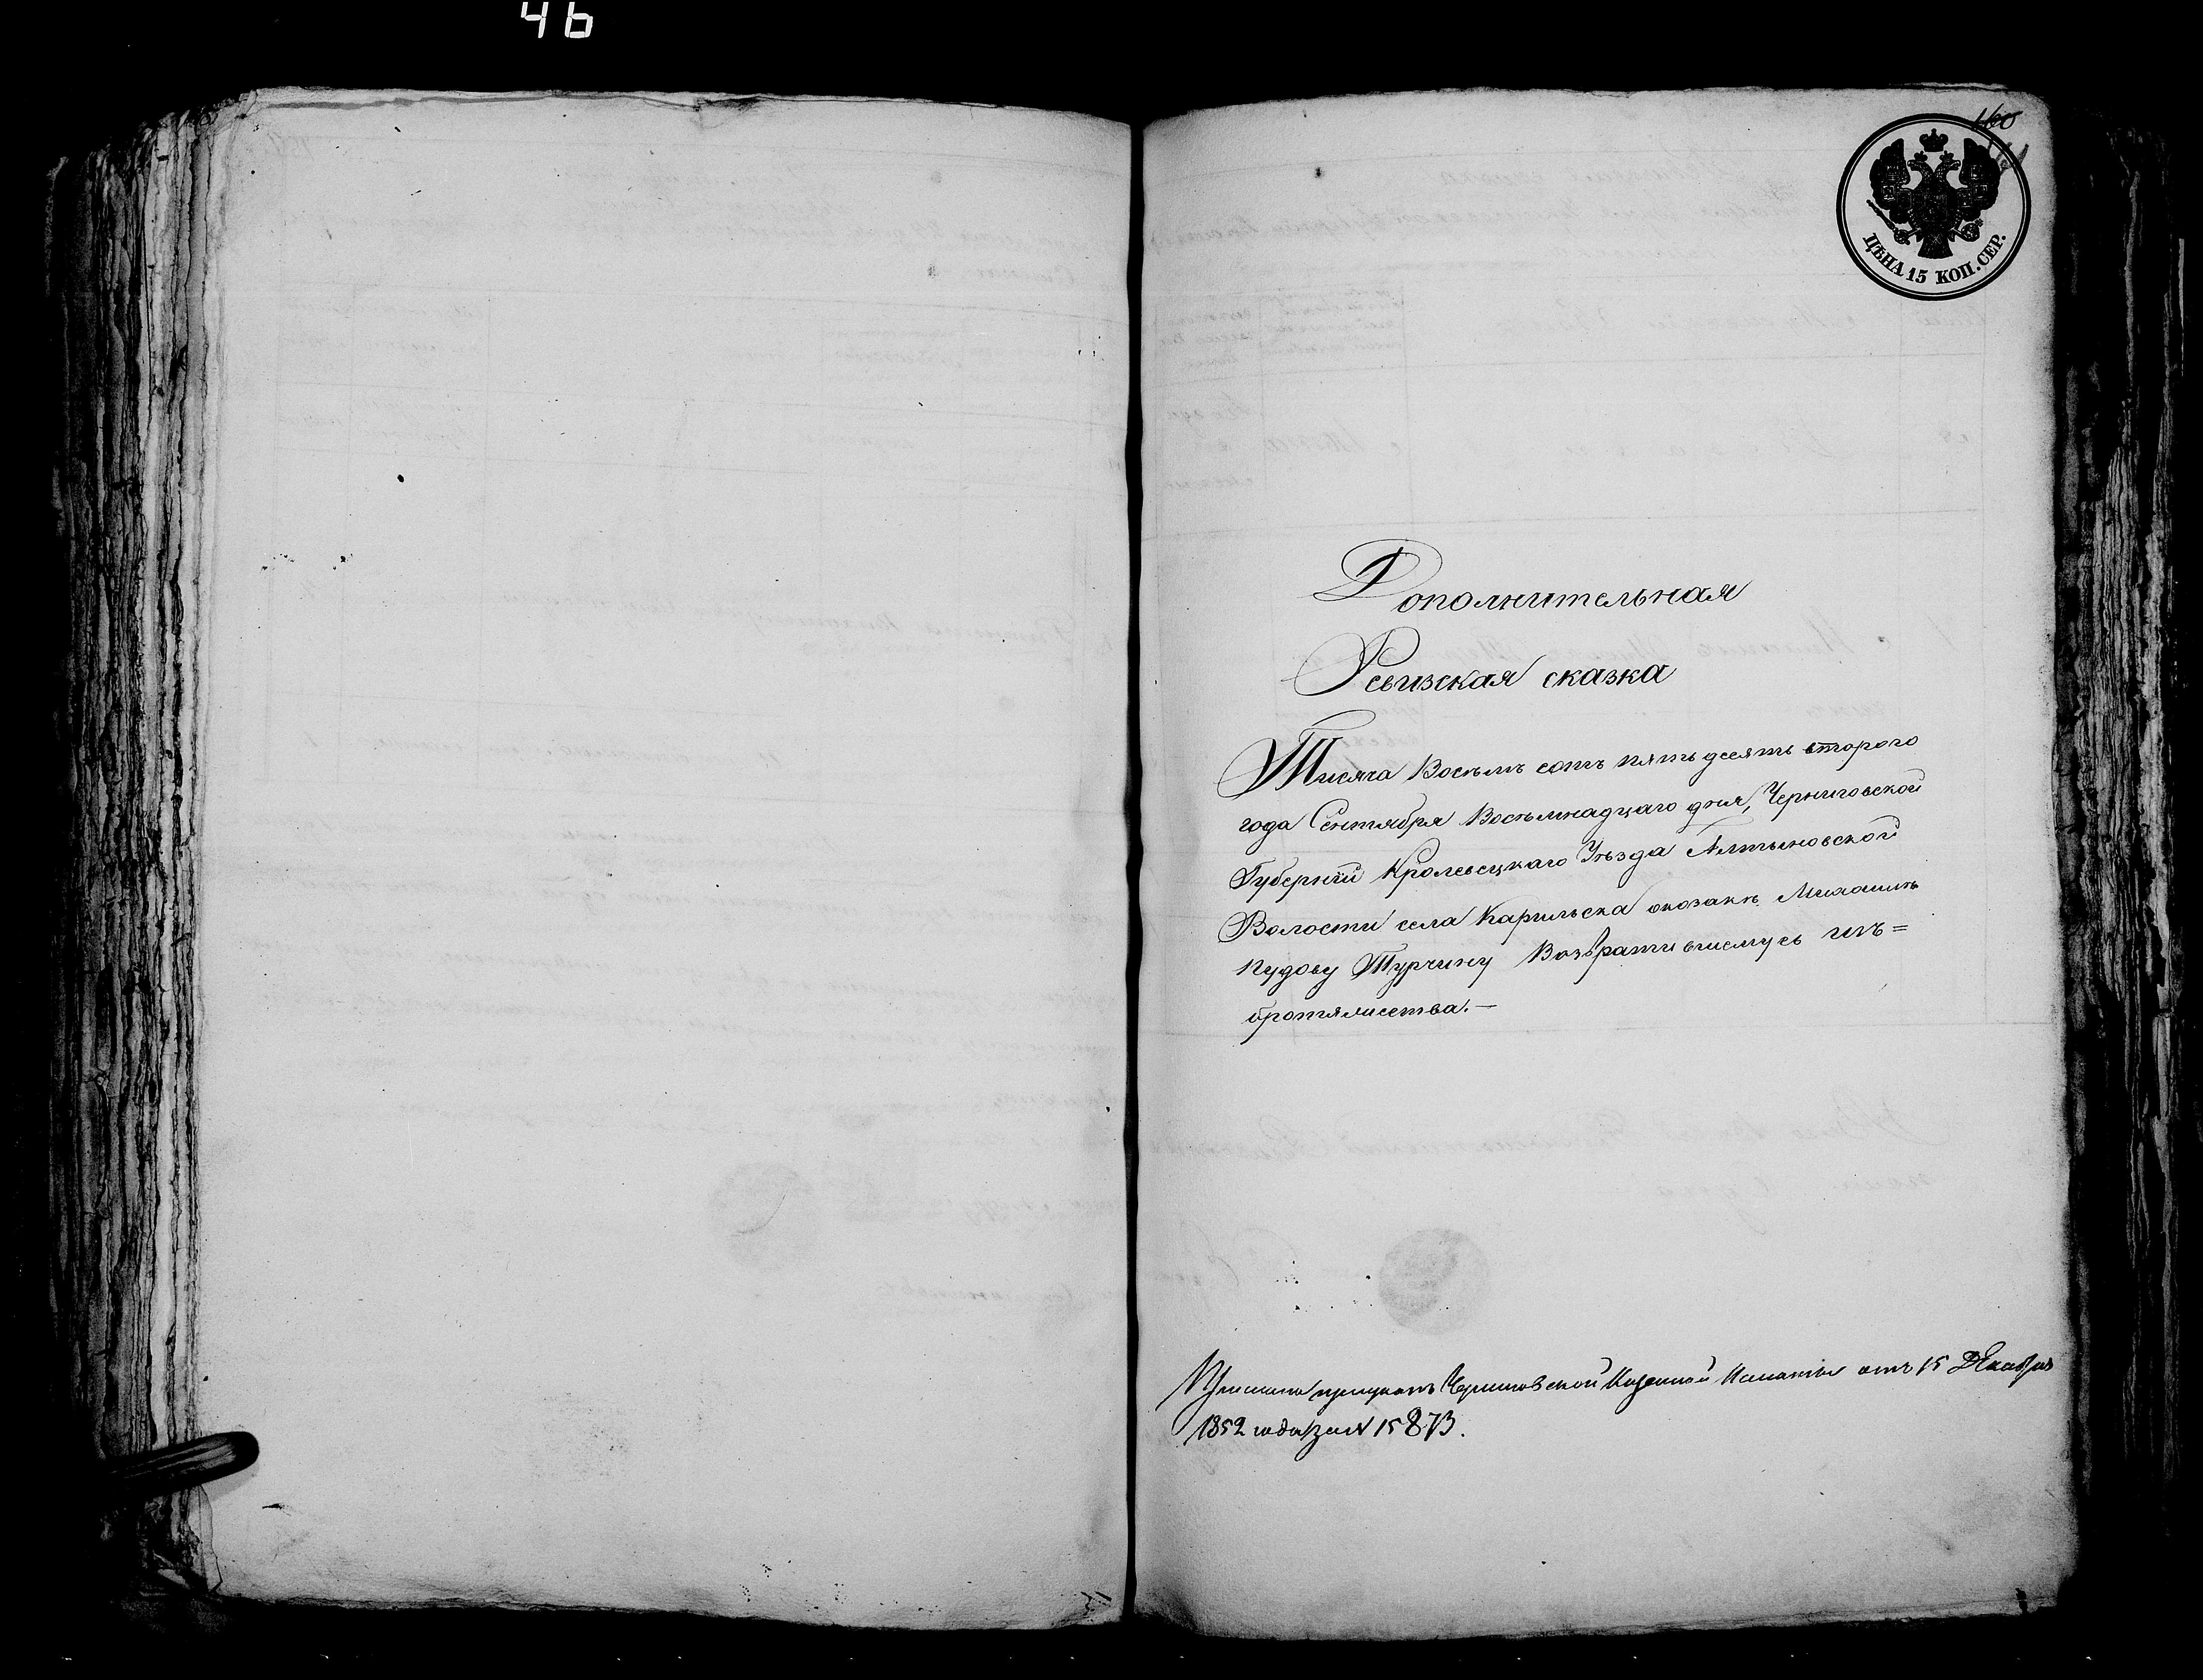 46
160
161
ЦѢНА 15 КОП. СЕР.
Дополнительная
Ревизская сказка
Тисяча Восемь сотъ пять десять второго
года Сентября Восьмнадцаго дня, Черниговской
Губерніи Кролевецкаго Уѣзда Алтыновской
Волости села Карильска окозакѣ Михаилѣ
Кудову Турчину Возвратившемусь изъ=
бротяжества.—
Черниговской Казенной Палаты отъ 15 Декабря
1852 года за № 15873.